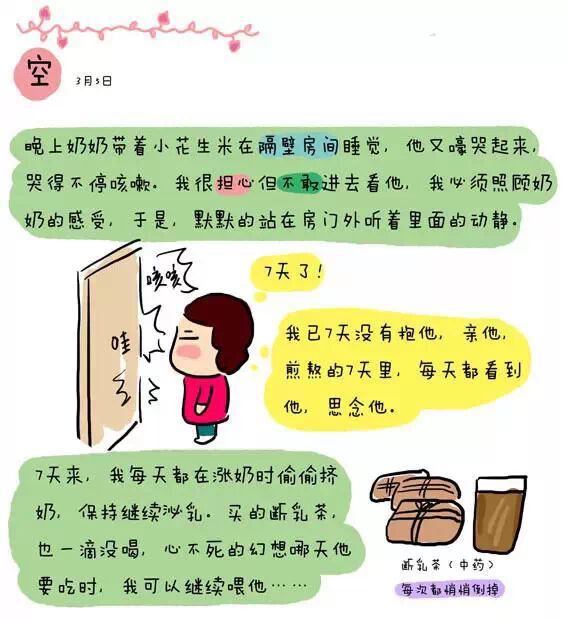 空
3月5日
晚上奶奶带着小花生米在隔壁房间睡觉，他又嚎哭起来，
哭得不停咳嗽。我很担心但不敢进去看他，我必须照顾奶
奶的感受，于是，默默的站在房门外听着里面的动静。
咳咳
7天了！
哇
我已7天没有抱他，亲他，
煎熬的7天里，每天都看到
他，思念他。
7天来，我每天都在涨奶时偷偷挤
奶，保持继续泌乳。买的断乳茶，
也一滴没喝，心不死的幻想哪天他
要吃时，我可以继续喂他……
断乳茶（中药）
每次都悄悄倒掉